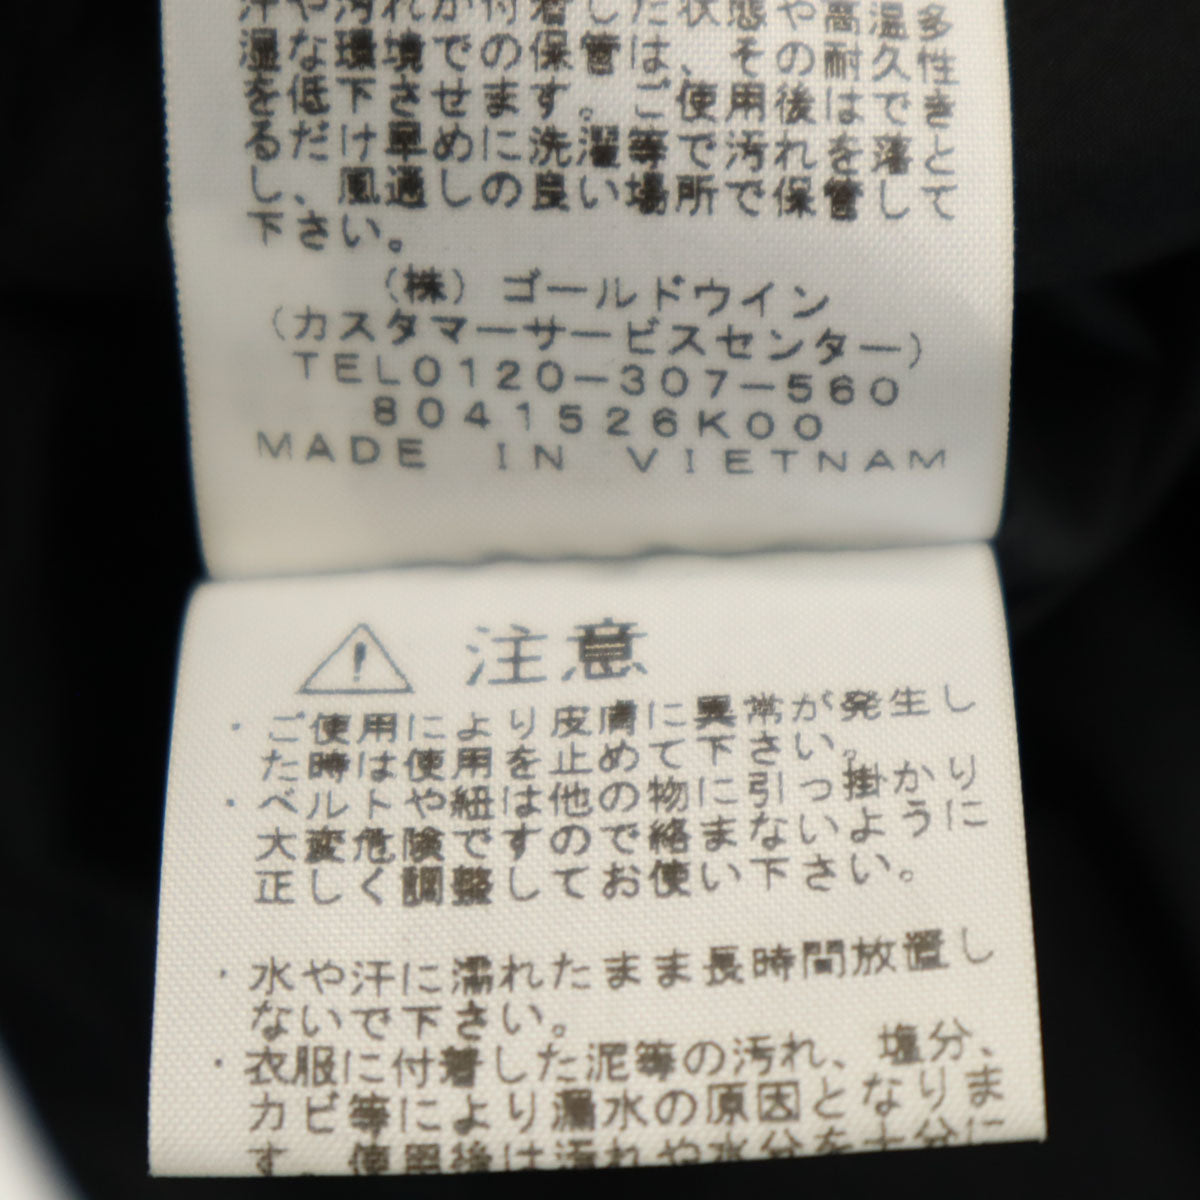 汗や汚れが付着した状態や高温多
湿な環境での保管は、その耐久性
を低下させます。ご使用後はできるだけ早めに洗濯等で汚れを落と
し、風通しの良い場所で保管して
下さい。
(株)ゴールドウイン
(カスタマーサービスセンター)
TEL0120-307-560
8041526K00
MADE IN VIETNAM
注意
・ご使用により皮膚に異常が発生し
た時は使用を止めて下さい。
・ベルトや紐は他の物に引っ掛かり
大変危険ですので絡まないように
正しく調整してお使い下さい。
・水や汗に濡れたまま長時間放置し
ないで下さい。
・衣服に付着した泥等の汚れ、塩分、
カビ等により漏水の原因となりま
す。使用後は汚れや水分を十分に